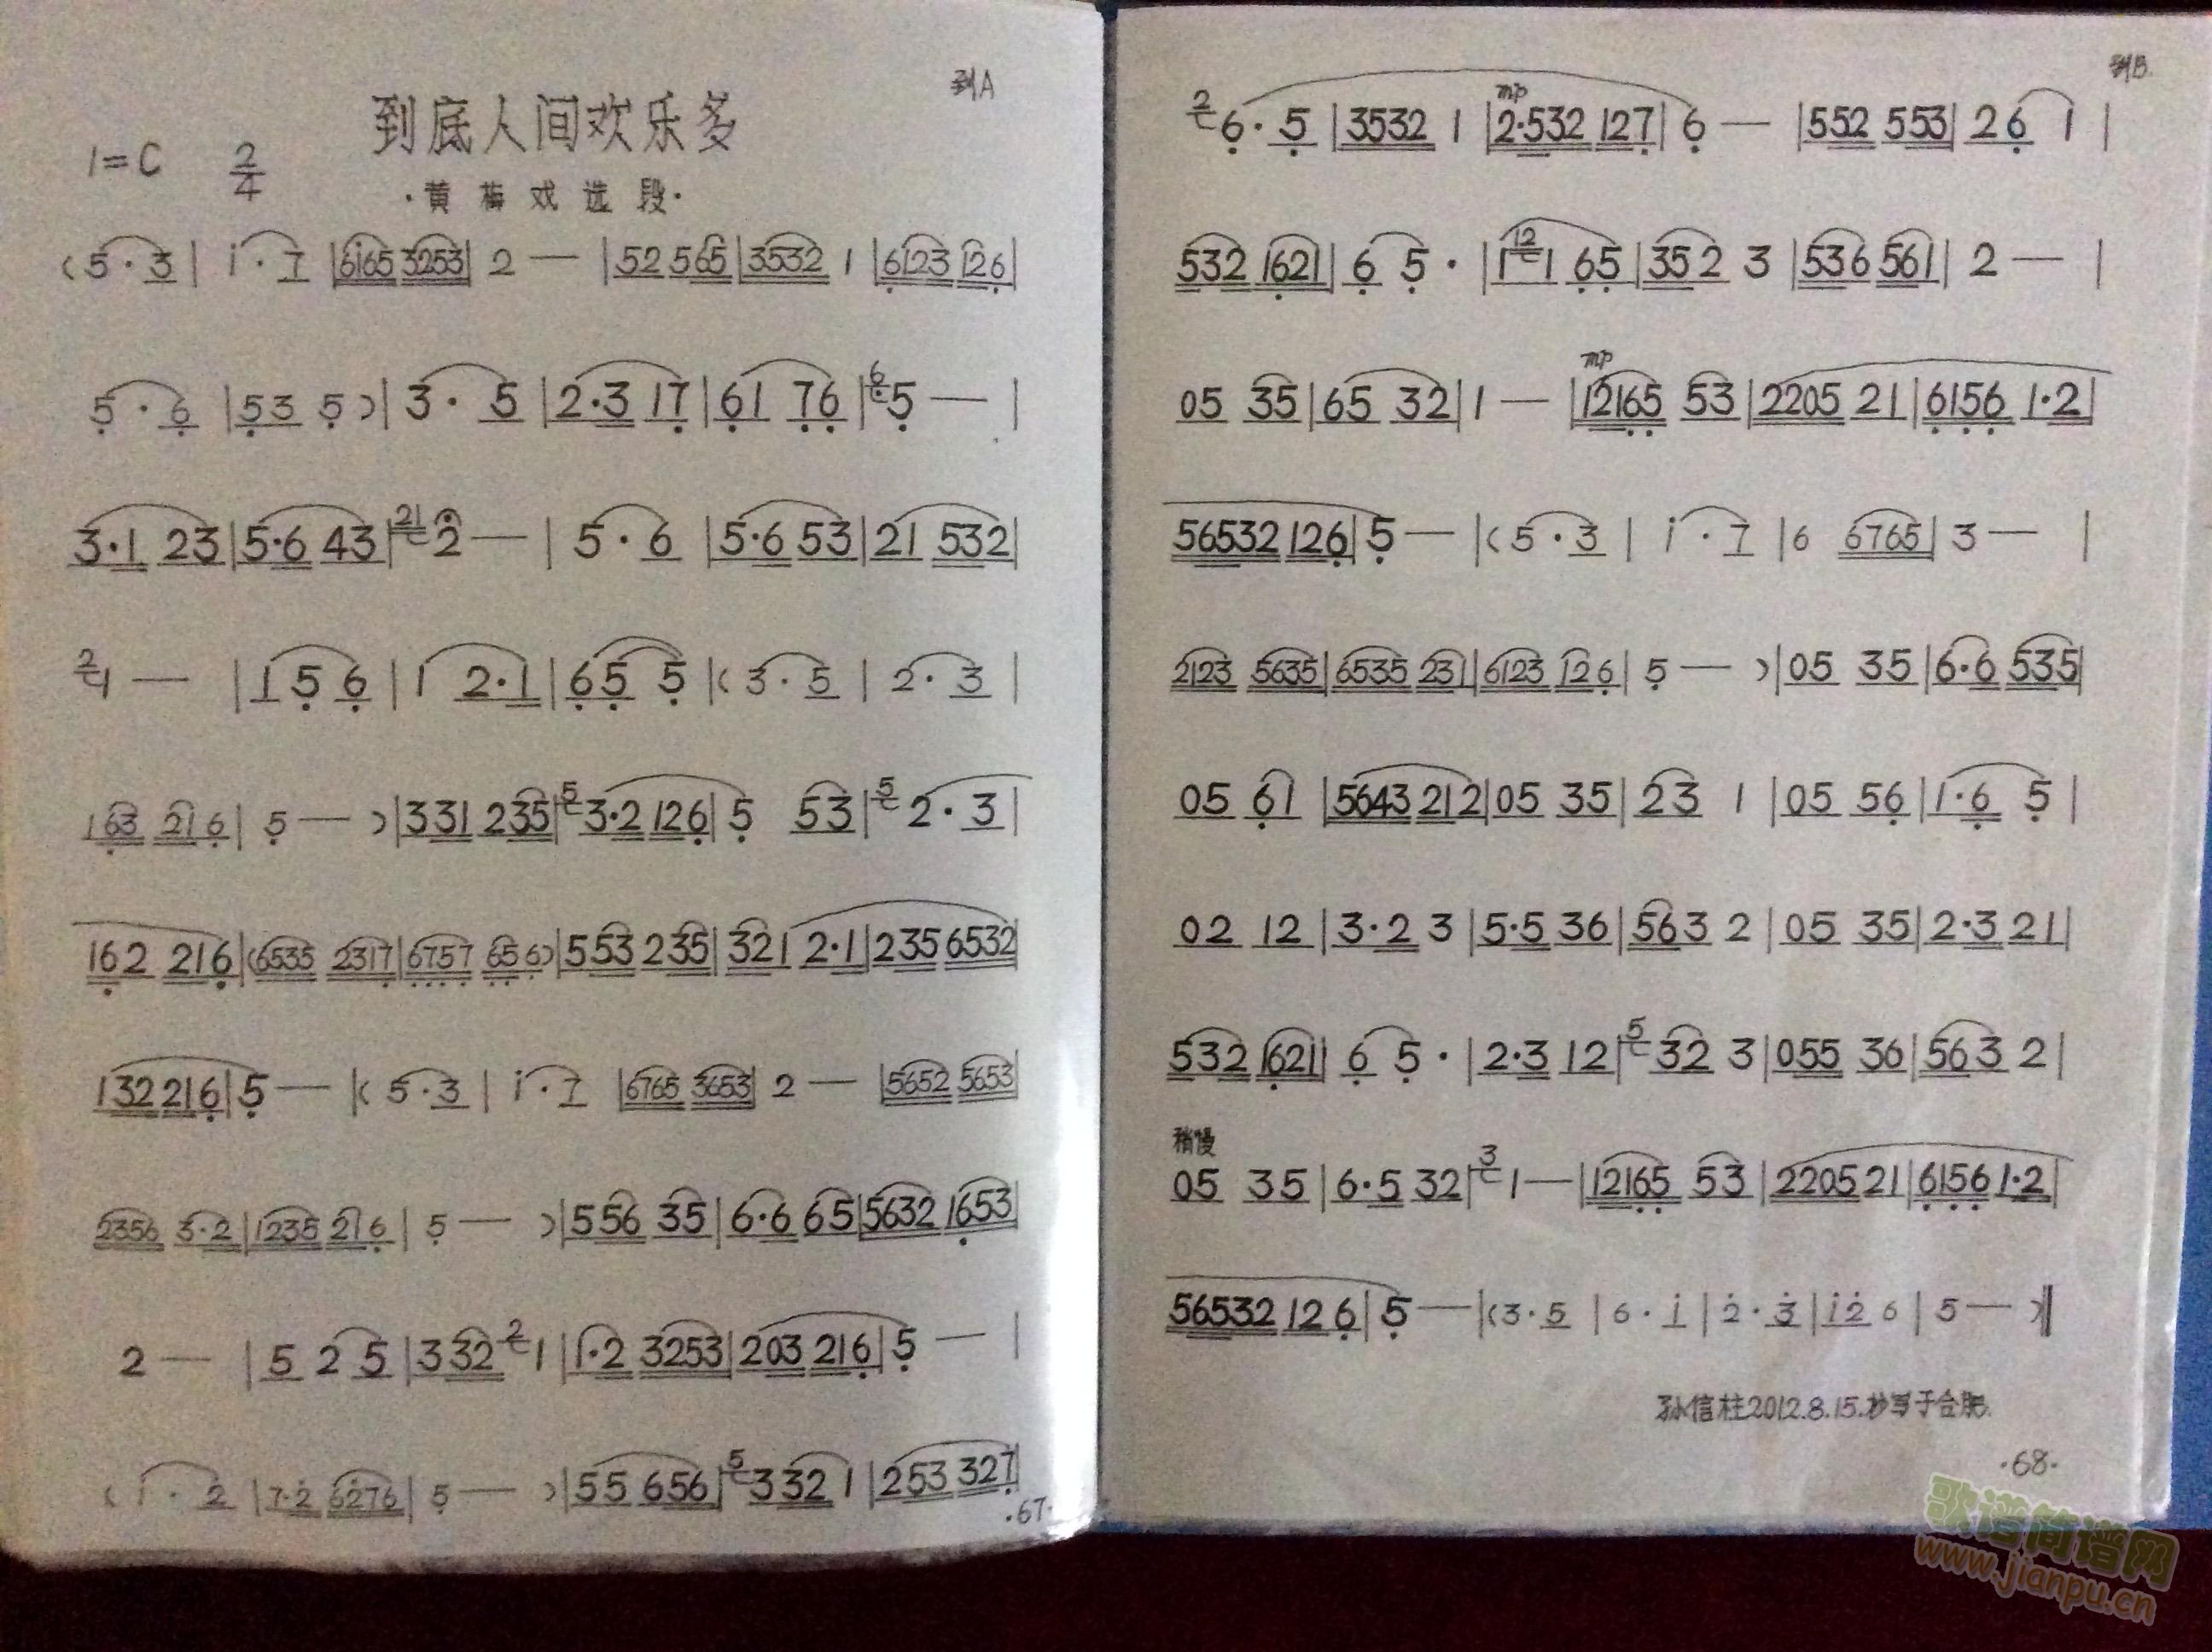 到A
到底人间欢乐多
1=C 2/4
·黄梅戏选段·
(5·3|i·7|6i65 3253|2—|52 565|3532 1|6123 126|
5·6|53 5)|3·5|2·3 17|61 76|6 5—|
3·1 23|5·6 43|21 2—|5·6|5·6 53|21 532|
2 1—|1 5 6|1 2·1|65 5|(3·5|2·3|
163 216|5—)|331 235|5 3·2 126|5 53|5 2·3|
162 216|(6535 2317|6757 656)|553 235|321 2·1|235 6532|
132 216|5—|(5·3|i·7|6765 3653|2—|5652 5653|
2356 3·2|1235 216|5—)|556 35|6·6 65|5632 1653|
2—|5 2 5|332 2 1|1·2 3253|203 216|5—|
(i·2|7·2 6276|5—)|55 656|5 332 1|253 327|
·67·
到B
2 6·5|3532 1|mp 2·532 127|6—|552 553|26 1|
532 1621|6 5·|1 12 1 65|352 3|536 561|2—|
05 35|65 32|1—|mp 12165 53|2205 21|6156 1·2|
56532 126|5—|(5·3|i·7|6 6765|3—|
2123 5635|6535 231|6123 126|5—)|05 35|6·6 535|
05 61|5643 212|05 35|23 1|05 56|1·6 5|
02 12|3·2 3|5·5 36|563 2|05 35|2·3 21|
532 1621|6 5·|2·3 12|5 32 3|055 36|563 2|
稍慢
05 35|6·5 32|3 1—|12165 53|2205 21|6156 1·2|
56532 126|5—|(3·5|6·i|2·3|i2 6|5—)‖
孙信柱2012.8.15.抄写于合肥.
·68·
歌谱简谱网
www.jianpu.cn